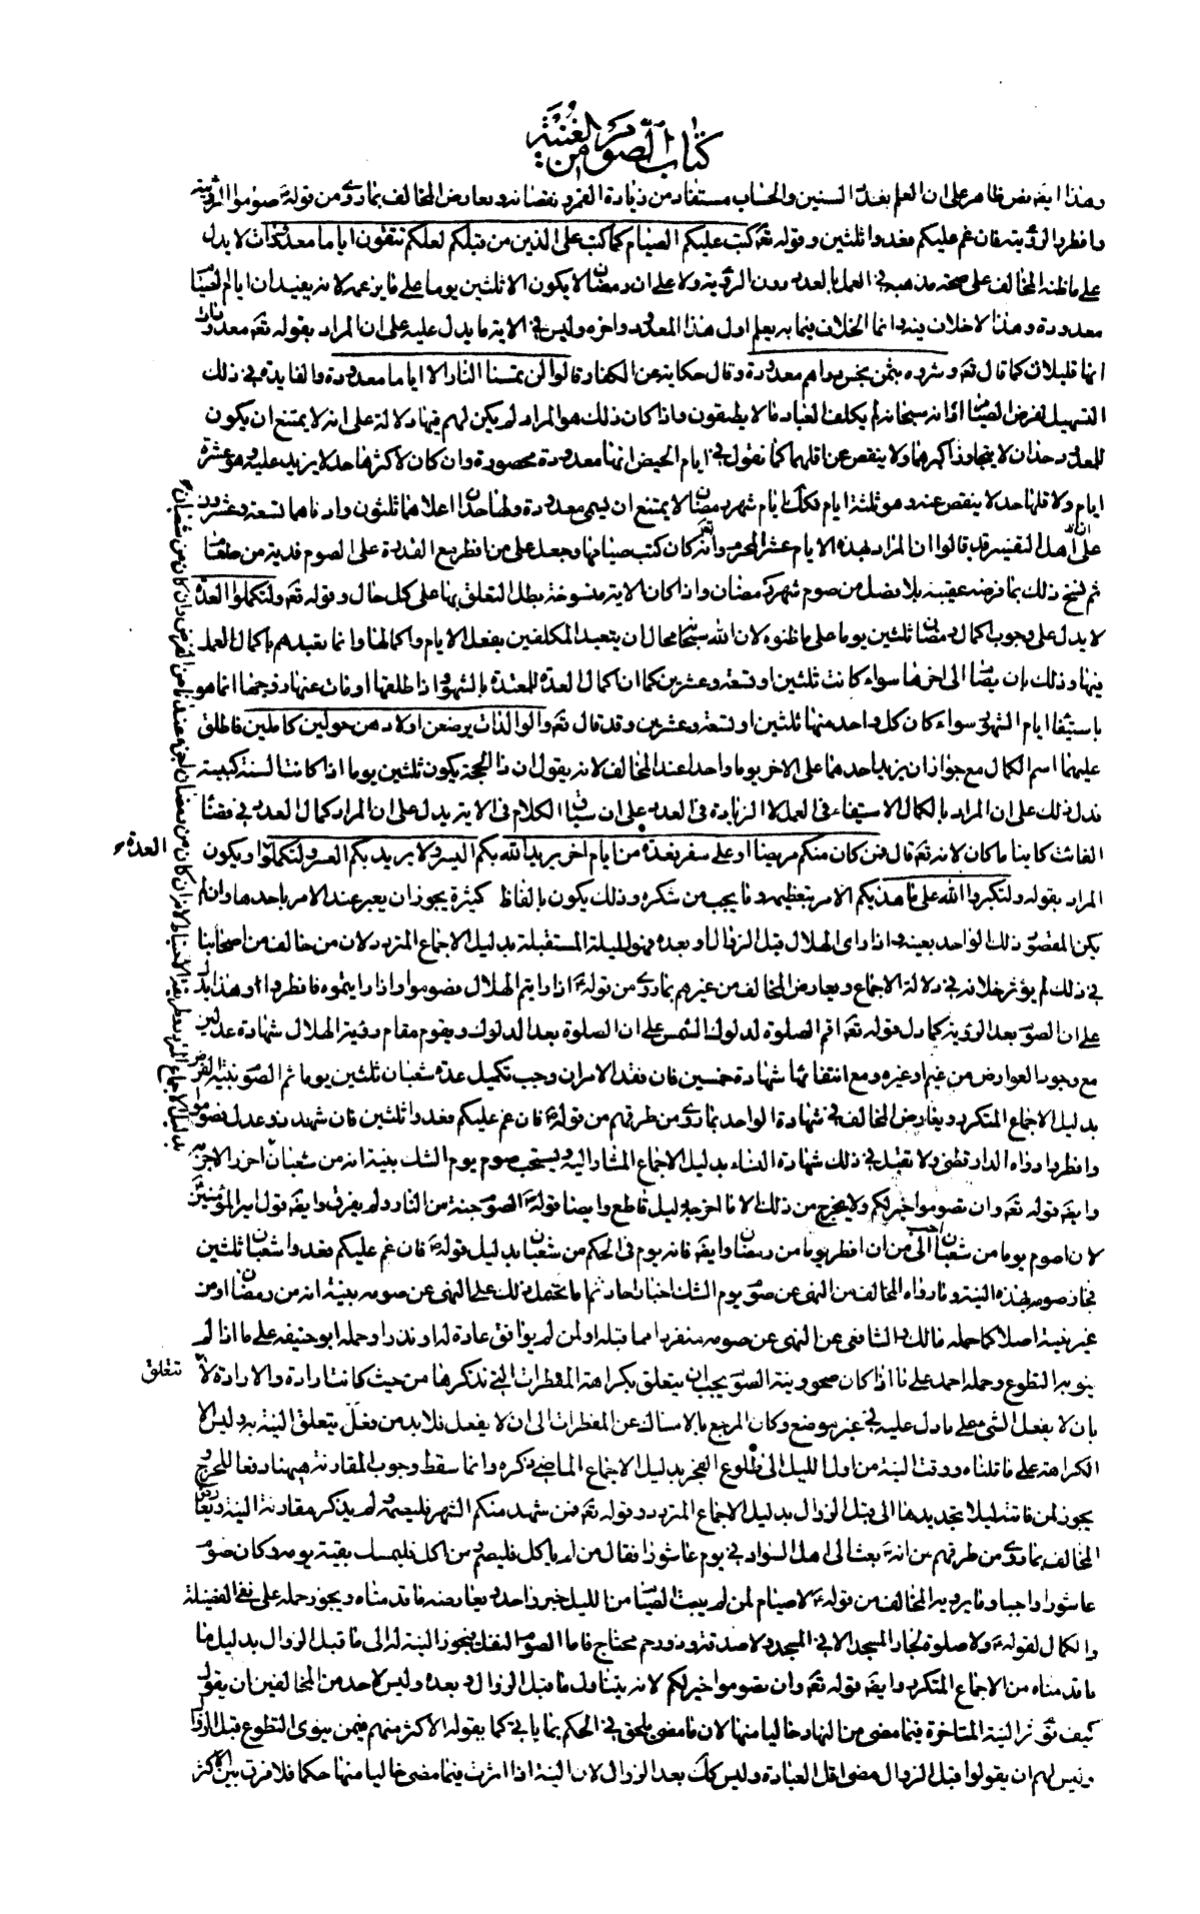 كتاب الصوم من الغنية
وهذا ايضا نص ظاهر على ان العلم بعدد السنين والحساب مستفاد من زيادة القمر ونقصانه ويعارض المخالف بما روي من قوله ع صوموا لرؤيته
وافطروا لرؤيته فان غم عليكم فعدوا ثلثين وقوله تعه كتب عليكم الصيام كما كتب على الذين من قبلكم لعلكم تتقون اياما معدودات لا يدل
على ما ظنه المخالف على صحة مذهبه في العمل بالعدد دون الرؤية ولا على ان رمضان لا يكون الا ثلثين يوما على ما يزعمه لانه يفيد ان ايام الصيام
معدودة وهذا لا خلاف فيه وانما الخلاف فيما به يعلم اول هذا المعدود واخره وليس في الاية ما يدل عليه على ان المراد بقوله تعه معدودات
انها قلايل كما قال تعه وشروه بثمن بخس دراهم معدودة وقال حكاية عن الكفار وقالوا لن تمسنا النار الا اياما معدودة والفايدة في ذلك
التسهيل لفرض الصيام اذ انه سبحانه لم يكلف العباد ما لا يطيقون واذا كان ذلك هو المراد لم يكن لهم فيها دلالة على انه لا يمتنع ان يكون
للمعدود حدان لا يتجاوز اكبرهما ولا ينقص عن اقلهما كما نقول في ايام الحيض انها معدودة محصورة وان كان لاكثرها حد لا يزيد عليه وهو عشرة
ايام ولاقلها حد لا ينقص عنه وهو ثلثة ايام فكك ايام شهر رمضان لا يمتنع ان يسمى معدودة ولها حدان اعلاهما ثلثون وادناهما تسعة وعشرون
على ان اهل التفسير قد قالوا ان المراد بهذه الايام عشر المحرم وانه كان كتب صيامها وجعل على من افطر مع القدرة على الصوم فدية من طعام
ثم نسخ ذلك بما فرضه عقيبه بلا فصل من صوم شهر رمضان واذا كان الاية منسوخة بطل التعلق بها على كل حال وقوله تعه ولتكملوا العدة
لا يدل على وجوب اكمال رمضان ثلثين يوما على ما ظنوه لان الله سبحانه محال ان يتعبد المكلفين بفعل الايام واكمالها وانما تعبدهم باكمال العمل
فيها وذلك بان يصام الى اخرها سواء كانت ثلثين او تسعة وعشرين كما ان اكمال العدة للمعتدة بالشهور اذا طلقها او مات عنها زوجها انما هو
باستيفاء ايام الشهور سواء كان كل واحد منها ثلثين او تسعة وعشرين وقد قال تعه والوالدات يرضعن اولادهن حولين كاملين فاطلق
عليهما اسم الكمال مع جواز ان يزيد احدهما على الاخر يوما واحدا عند المخالف لانه يقول ان ذا الحجة يكون ثلثين يوما اذا كانت السنة كبيسة
فدل ذلك على ان المراد بالكمال الاستيفاء في العمل لا الزيادة في العدد على ان سياق الكلام في الاية يدل على ان المراد كمال العدد في قضاء
الفائت كاينا ما كان لانه تعه قال فمن كان منكم مريضا او على سفر فعدة من ايام اخر يريد الله بكم اليسر ولا يريد بكم العسر ولتكملوا ويكون
العدة
المراد بقوله ولتكبروا الله على ما هديكم الامر بتعظيمه وما يجب من شكره وذلك يكون بالفاظ كثيرة يجوز ان يعبر عند الامر باحدها وان لم
يكن المقصود ذلك الواحد بعينه واذا راى الهلال قبل الزوال او بعده فهو لليلة المستقبلة بدليل الاجماع المتردد ولان من خالف من اصحابنا
في ذلك لم يؤثر خلافه في دلالة الاجماع ويعارض المخالف من غيرهم بما روي من قوله ع اذا رايتم الهلال فصوموا واذا رايتموه فافطروا وهذا يدل
على ان الصوم بعد الرؤية كما دل قوله تعه اقم الصلوة لدلوك الشمس على ان الصلوة بعد الدلوك ويقوم مقام رؤية الهلال شهادة عدلين
مع وجود العوارض من غيم او غيره ومع انتفائها شهادة خمسين فان فقد الامران وجب تكميل عدة شعبان ثلثين يوما ثم الصوم بنية الفرض
بدليل الاجماع المتكرر ويعارض المخالف في شهادة الواحد بما روي من طرقهم من قوله ع فان غم عليكم فعدوا ثلثين فان شهد ذوا عدل فصوموا
وافطروا رواه الدارقطني ولا تقبل في ذلك شهادة النساء بدليل الاجماع المشار اليه ويستحب صوم يوم الشك بنية انه من شعبان
وايضا قوله تعه وان تصوموا خير لكم ولا يخرج من ذلك الا ما اخرجه دليل قاطع وايضا قوله ع الصوم جنة من النار ولم يفرق وايضا قول امير المؤمنين
لان اصوم يوما من شعبان احب الى من ان افطر يوما من رمضان وايضا فانه يوم في الحكم من شعبان بدليل قوله ع فان غم عليكم فعدوا شعبان ثلثين
فجاز صومه بهذه النية وما رواه المخالف من النهى عن صوم يوم الشك اخبار احاد ثم انا نحمل ذلك على النهى عن صومه بنية انه من رمضان او من
غير نية اصلا كما حمله مالك والشافعي عن النهى عن صومه منفردا مما قبله او لمن لم يوافق عادة له او نذر وحمله ابو حنيفة على ما اذا لم
ينو به التطوع وحمله احمد على ما اذا كان صحو ونية الصوم يجب ان يتعلق بكراهة المفطرات التي نذكرها من حيث كانت ارادة والارادة لا
تتعلق
بان لا يفعل الشيء على ما دل عليه في غير موضع وكان المرجع بالامساك عن المفطرات الى ان لا يفعل فلا بد من فعل يتعلق النية به وليس الا
الكراهة على ما قلناه ووقت النية من اول الليل الى طلوع الفجر بدليل الاجماع الماضي ذكره وانما سقط وجوب المقارنة هيهنا رفعا للحرج و
يجوز لمن فاتته ليلا تجديدها الى قبل الزوال بدليل الاجماع المتردد وقوله تعه فمن شهد منكم الشهر فليصمه ولم يذكر مقارنة النية ويعارض
المخالف بما روي من طرقهم من انه ع بعث الى اهل السواد في يوم عاشورا فقال من لم ياكل فليصم ومن اكل فليمسك بقية يومه وكان صوم
عاشورا واجبا وما يرويه المخالف من قوله ع لا صيام لمن لم يبيت الصيام من الليل خبر واحد ويعارضه ما قدمناه ويجوز حمله على نفى الفضيلة
والكمال لقوله ع ولا صلوة لجار المسجد الا في المسجد ولا صدقة وذو رحم محتاج فاما الصوم النفل فيجوز النية له الى ما قبل الزوال بدليل ما
ما قدمناه من الاجماع المتكرر وايضا قوله تعه وان تصوموا خير لكم لانه يتناول ما قبل الزوال وبعده وليس لاحد من المخالفين ان يقول
كيف تؤثر النية المتاخرة فيما مضى من النهار خاليا منها لان ما مضى يلحق في الحكم بما ياتي كما يقوله الاكثر منهم فيمن ينوى التطوع قبل الزوال
وليس لهم ان يقولوا قبل الزوال مضى اقل العبادة وليس كك بعد الزوال لان النية اذا اثرت فيما مضى خاليا منها حكما فلا فرق بين الاكثر